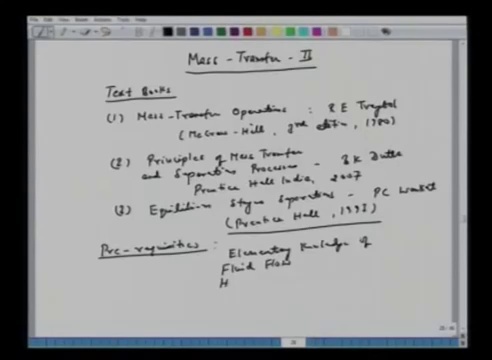 Mass - Transfer - II
Text Books
(1) Mass-Transfer Operations : R E Treybal
(McGraw-Hill, 3rd edition, 1980)
(2) Principles of Mass Transfer
and Separation Processes - B K Dutta
Prentice Hall India, 2007
(3) Equilibrium Stage Separations - PC Wankat
(Prentice Hall, 1993)
Pre-requisities : Elementary Knowledge of
Fluid Flow
H